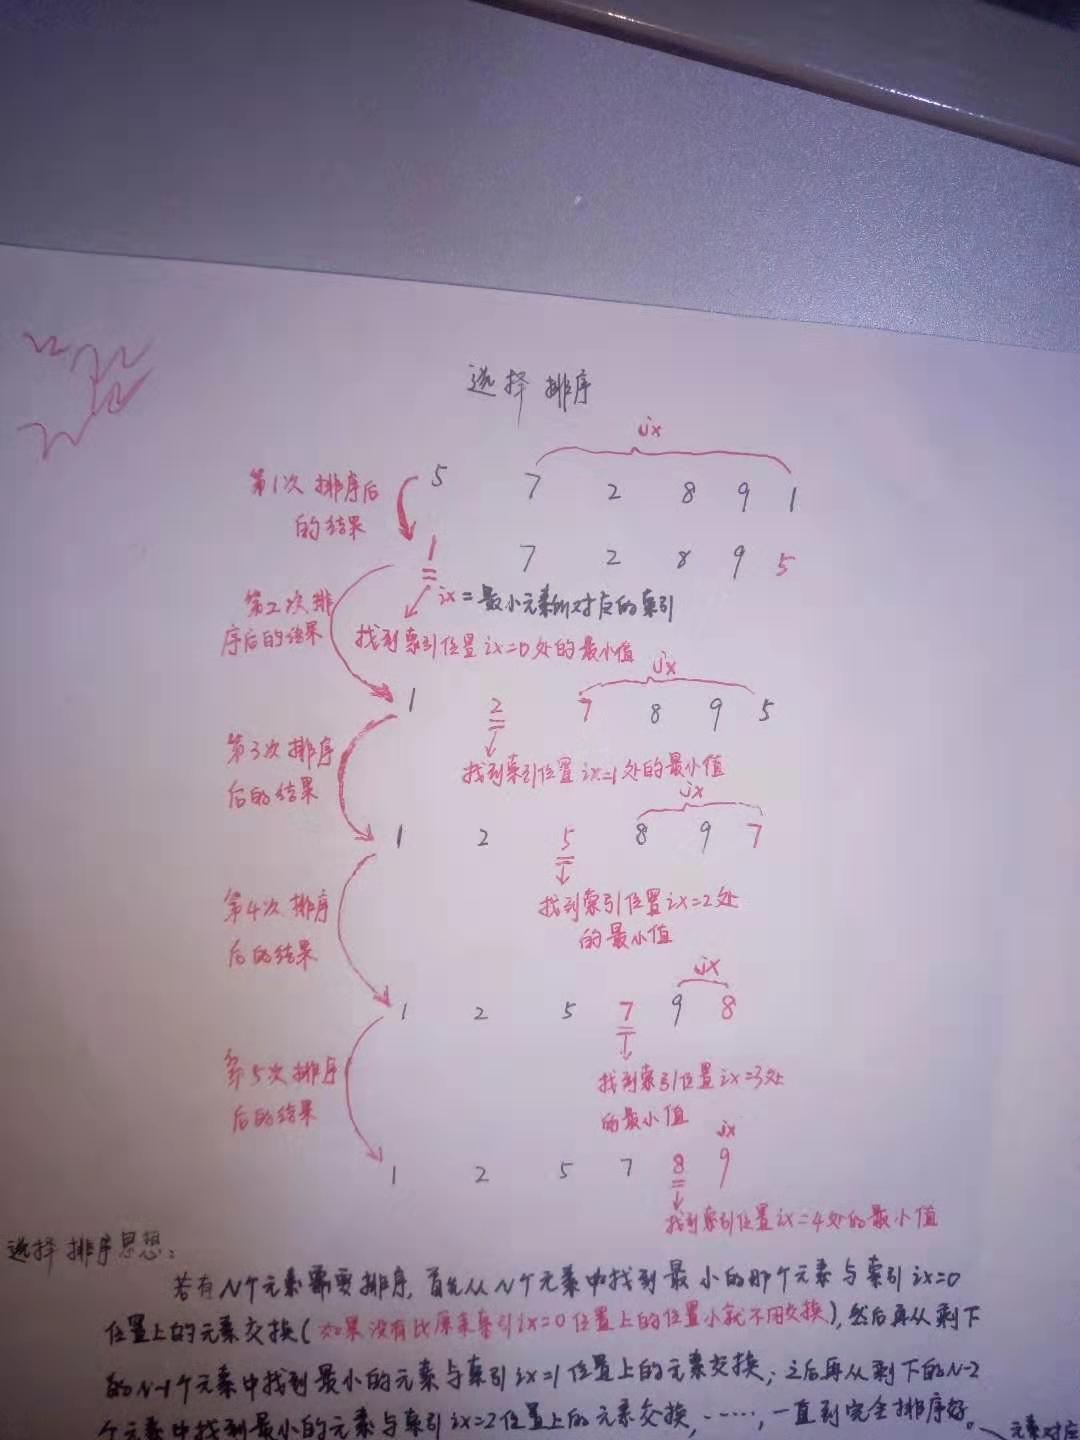 选择排序
jx
第1次排序后
的结果
5 7 2 8 9 1
1 7 2 8 9 5
ix=最小元素所对应的索引
第2次排
序后的结果
找到索引位置ix=0处的最小值
jx
1 2 7 8 9 5
第3次排序
后的结果
找到索引位置ix=1处的最小值
jx
1 2 5 8 9 7
第4次排序
后的结果
找到索引位置ix=2处
的最小值
jx
1 2 5 7 9 8
第5次排序
后的结果
找到索引位置ix=3处
的最小值
jx
1 2 5 7 8 9
找到索引位置ix=4处的最小值
选择排序思想:
若有N个元素需要排序,首先从N个元素中找到最小的那个元素与索引ix=0
位置上的元素交换(如果没有比原来索引ix=0位置上的位置小就不用交换),然后再从剩下
的N-1个元素中找到最小的元素与索引ix=1位置上的元素交换;之后再从剩下的N-2
个元素中找到最小的元素与索引ix=2位置上的元素交换,……,一直到完全排序好。
元素对应